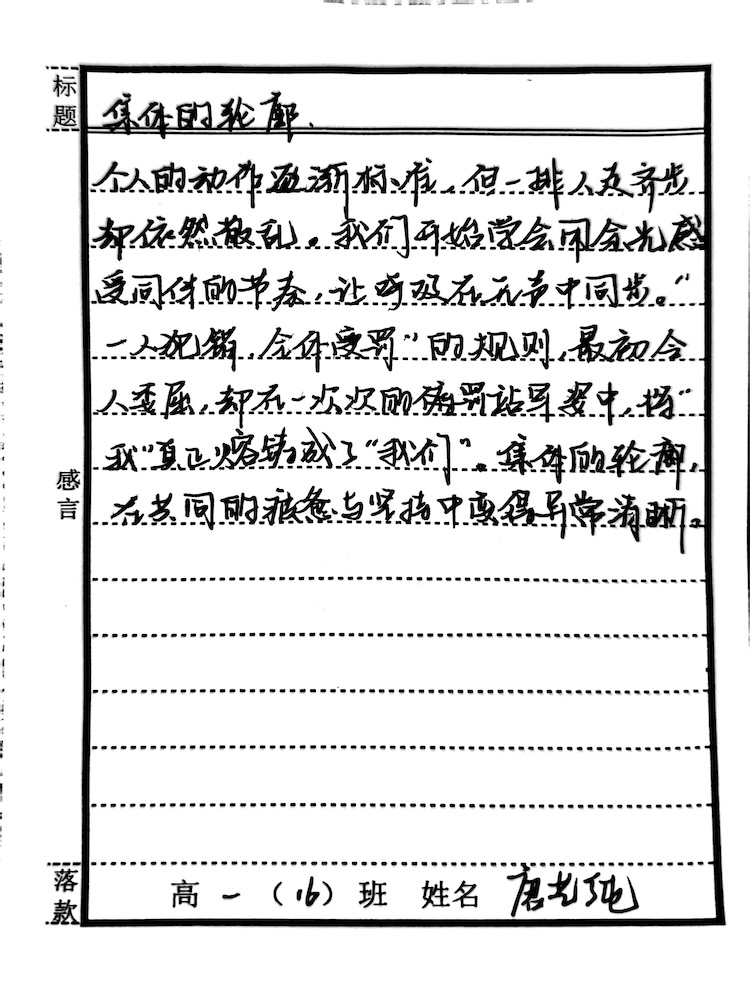 标题
集体的轮廓.
个人的动作逐渐标准,但一排人走齐步
却依然散乱。我们开始学会用余光感
受同伴的节奏,让呼吸在无声中同步。“
一人犯错,全体受罚”的规则,最初令
人委屈,却在一次次的俦罚站军姿中,将“
我”真正熔铸成了“我们”。集体的轮廓,
在共同的疲惫与坚持中变得异常清晰。
感言
落款
高一(16)班 姓名 唐艺纯